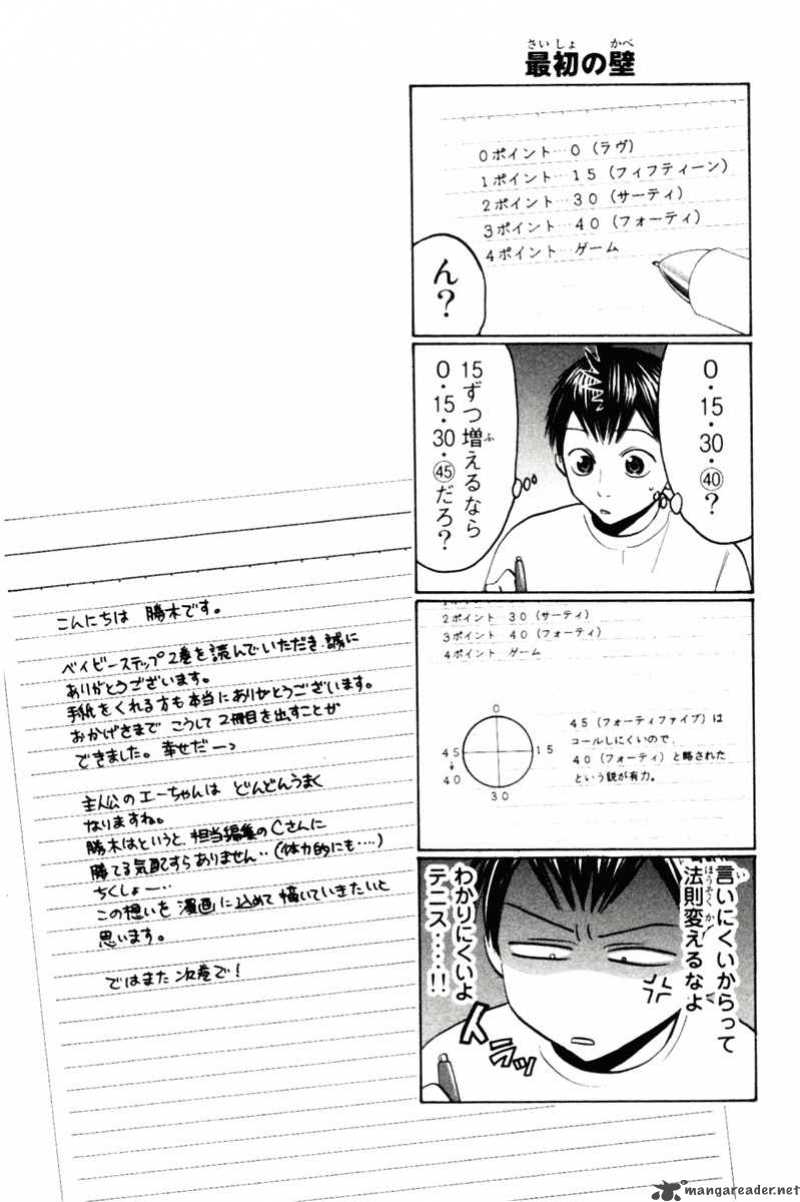 最初の壁
さいしょ
かべ
0ポイント…0(ラヴ)
1ポイント…15(フィフティーン)
2ポイント…30(サーティ)
3ポイント…40(フォーティ)
4ポイント ゲーム
ん?
0・15・30・㊵?
15ずつ増えるなら
ふ
0・15・30・㊺だろ?
2ポイント 30(サーティ)
3ポイント 40(フォーティ)
4ポイント ゲーム
0
15
30
45
40
45(フォーティファイブ)は
コールしにくいので、
40(フォーティ)と略された
という説が有力。
言いにくいからって
い
法則変えるなよ
ほうそくか
わかりにくいよ
テニス…!!
イラッ
こんにちは 勝木です。
ベイビーステップ2巻を読んでいただき誠に
ありがとうございます。
手紙をくれる方も本当にありがとうございます。
おかげさまで こうして2冊目を出すことが
できました。幸せだーっ
主人公のエーちゃんは どんどんうまく
なりますね。
勝木はというと、担当編集のCさんに
勝てる気配すらありません‥(体力的にも‥‥)
ちくしょー‥
この想いを 漫画に込めて 描いていきたいと
思います。
ではまた次巻で!
mangareader.net